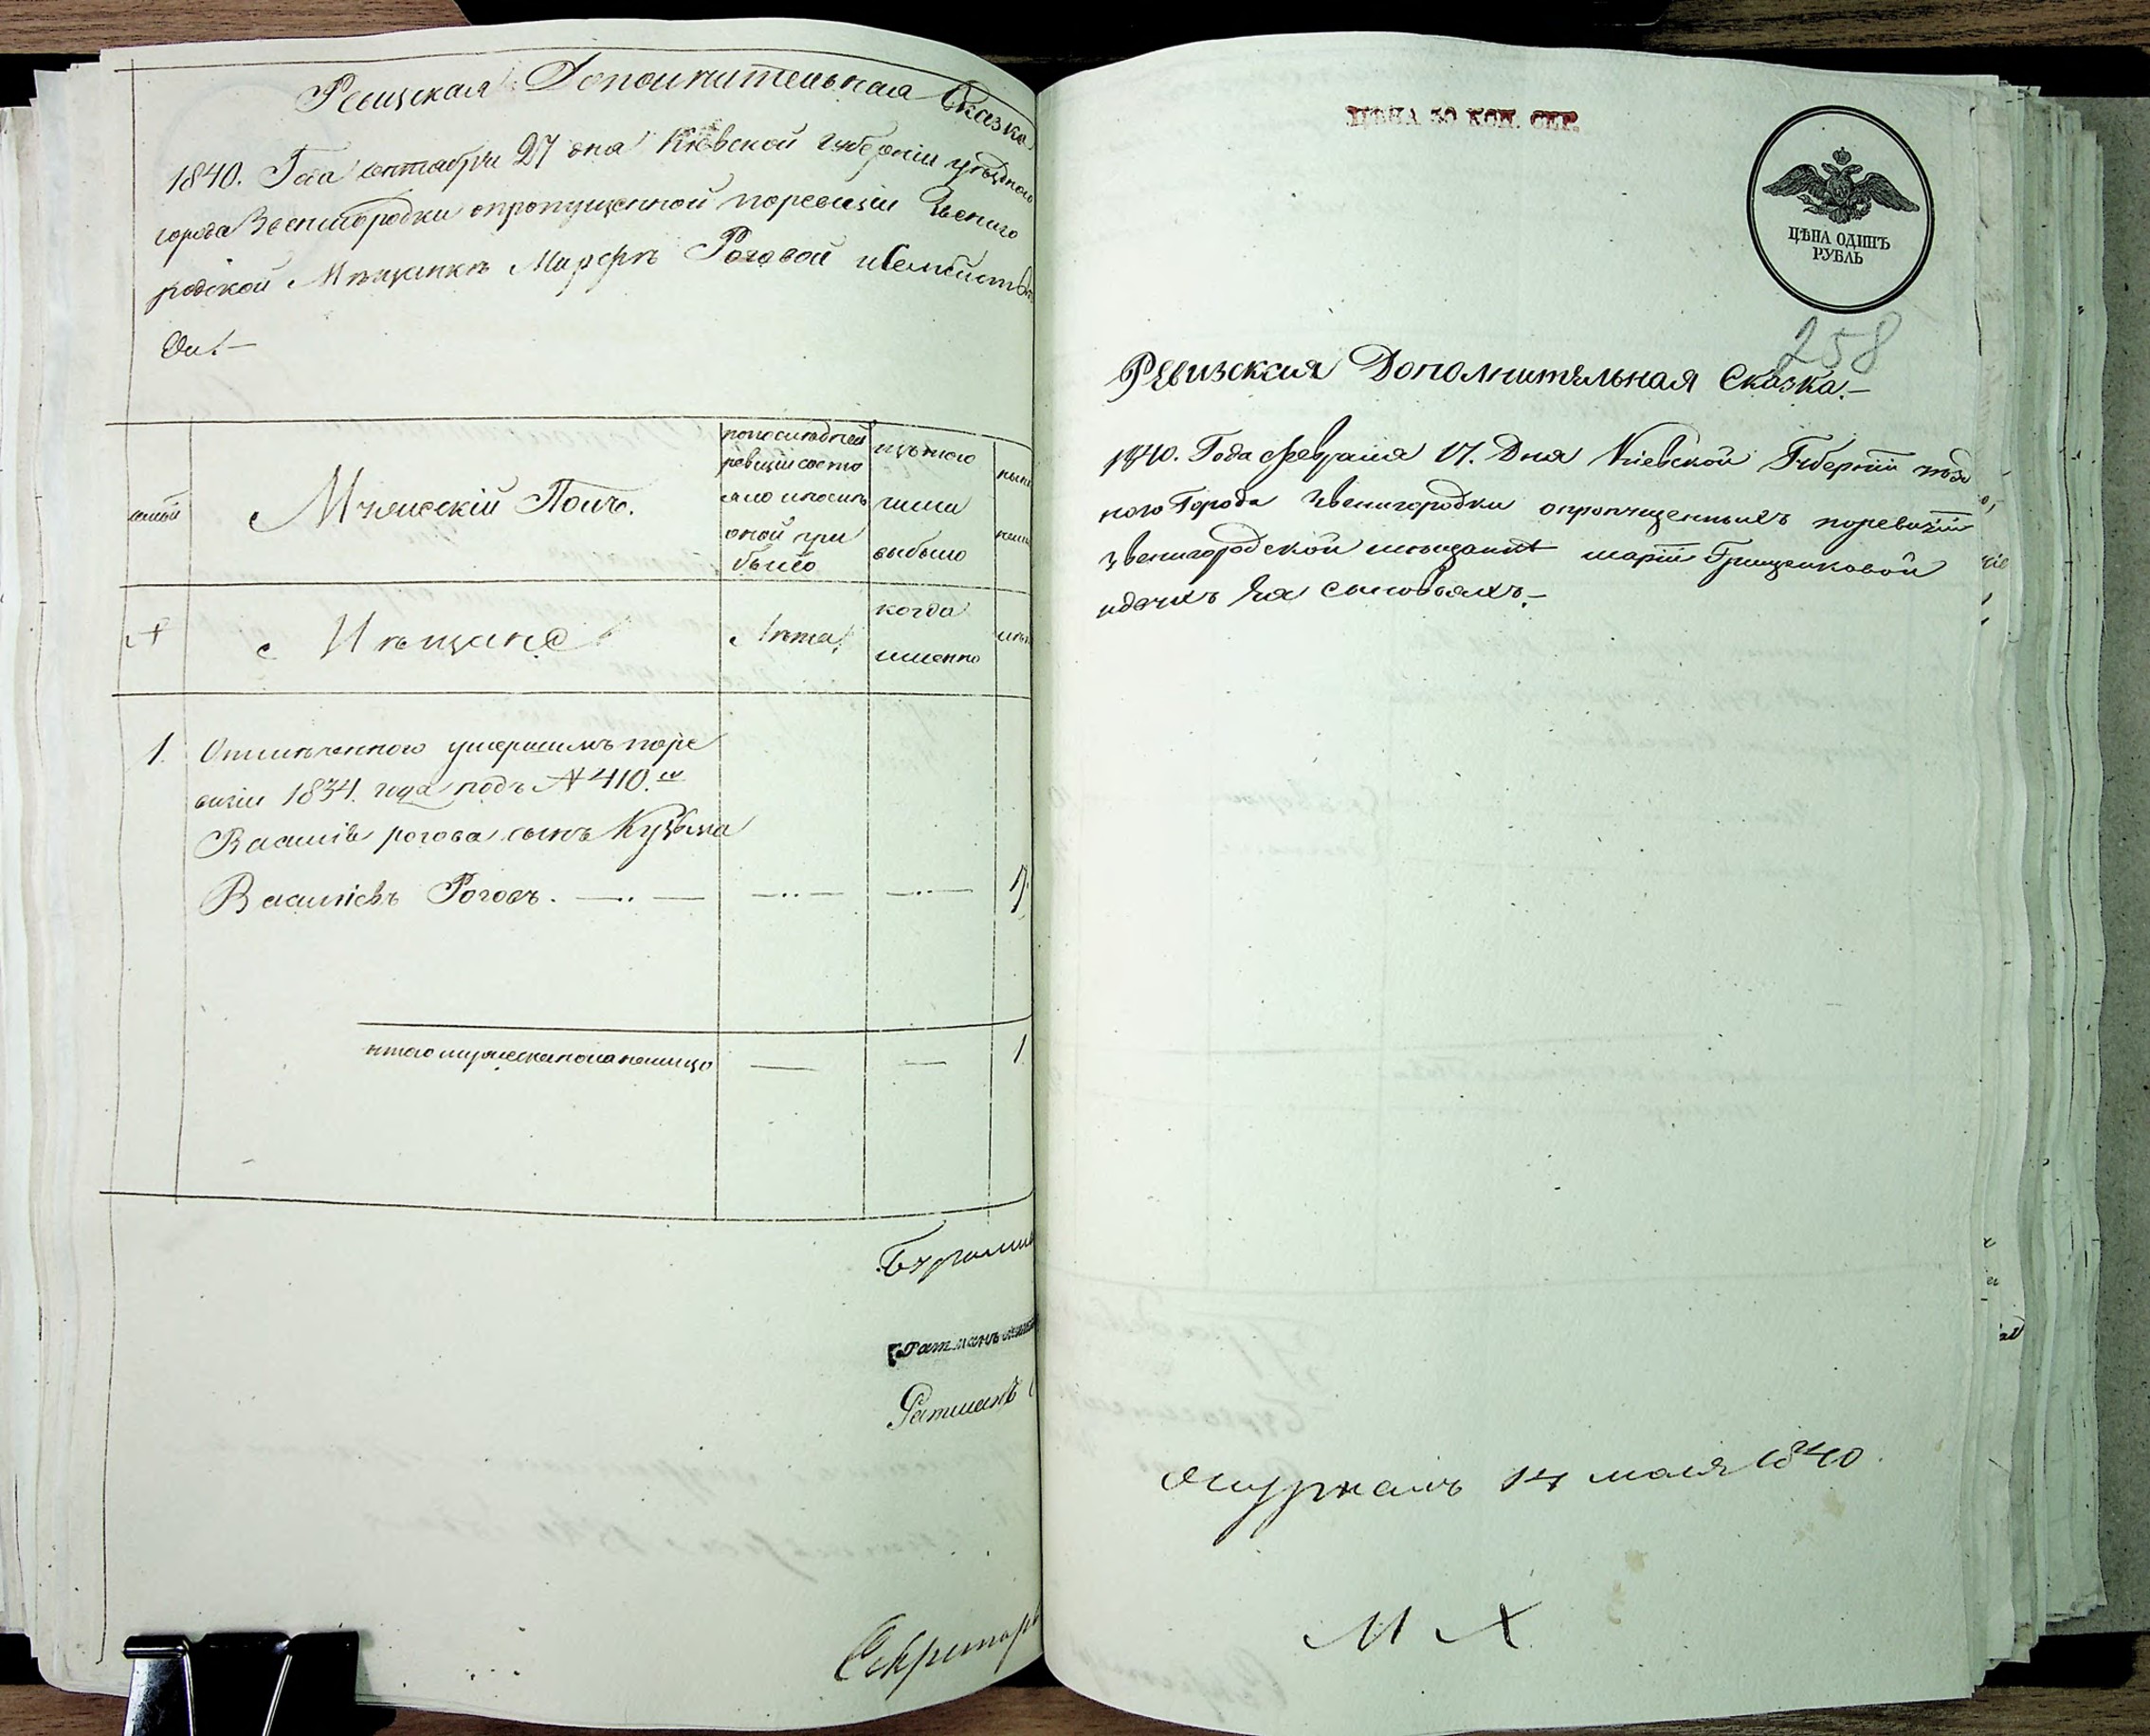 Ревизская Дополнительная Сказка
1840. Года сентября 27 дня Кіевской губерніи уѣздного
города Звенигородки опропущенной поревизіи Звениго
родской Мѣщанкѣ Марфѣ Роговой исемействѣ
Ея.—
Мужескій Полъ.
попоследней
ревизіи состо
яло ипослѣ
оной при
было
изътого
числа
выбыло
нынѣ
Мѣщане
Лѣта
когда
именно
1. Отмѣченного умершимъ поре
визіи 1834. года подъ № 410.м
Василія рогова сынъ Кузьма
Васильевъ Роговъ. 7.
итого мужеска пола налицо — — 1
Бургоми
Ратманъ
Ратманъ
Секретарь
ЦѢНА 30 КОП. СЕР.
ЦѢНА ОДИНЪ
РУБЛЬ
258
Ревизская Дополнительная Сказка.—
1840. Года февраля 17. Дня Кіевской Губерніи уѣзд
ного Города Звенигородки опропущенныхъ поревизіи
Звенигородской мѣщанкѣ маріи Грищенковой
идвухъ Ея Сыновьяхъ.—
Журналъ 14 мая 1840.
М Х